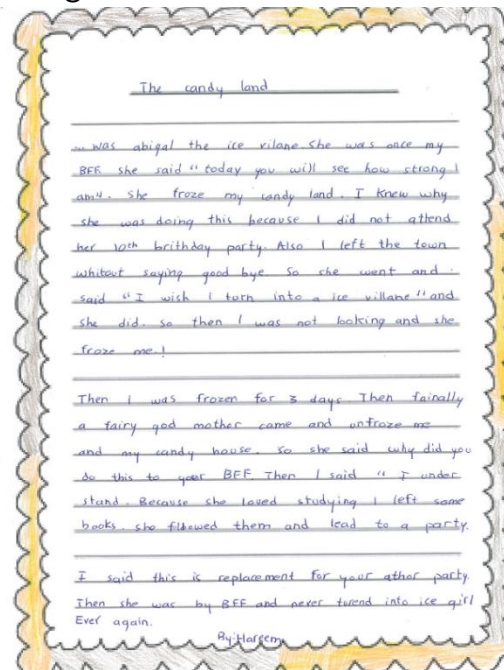 The candy land
... was abigal the ice vilane. She was once my
BFF. she said "today you will see how strong I
am". She froze my candy land. I knew why
she was doing this because I did not attend
her 10th brithday party. Also I left the town
whitout saying good bye. So she went and
said "I wish I torn into a ice villane" and
she did. so then I was not looking and she
froze me!
Then I was frozen for 3 days. Then fainally
a fairy god mother came and unfroze me
and my candy house. So she said why did you
do this to your BFF. Then I said " I under
stand. Because she loved studying I left some
books. she fllowed them and lead to a party.
I said this is replacement for your athor party.
Then she was by BFF and never torend into ice girl
Ever again.
By: Hareem